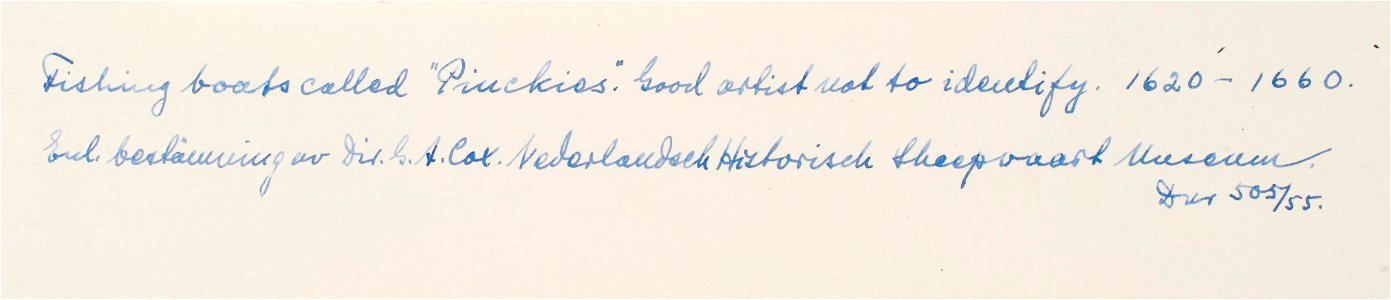 Fishing boats called "Pinckies". Good artist not to identify. 1620 – 1660.
Enl. bestämning av Dir. G. A. Cox. Nederlandsch Historisch Sheepvaart Museum.
Dnr 505/55.